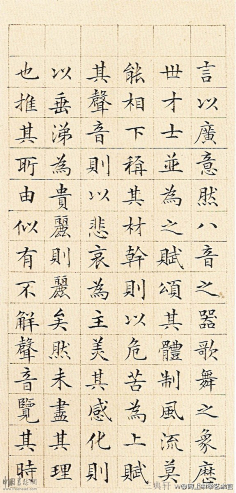 言以廣意然八音之器歌舞之象歷
世才士並為之賦頌其體制風流莫
能相下稱其材幹則以危苦為上賦
其聲音則以悲哀為主美其感化則
以垂涕為貴麗則麗矣然未盡其理
也推其所由似有不解聲音覽其時